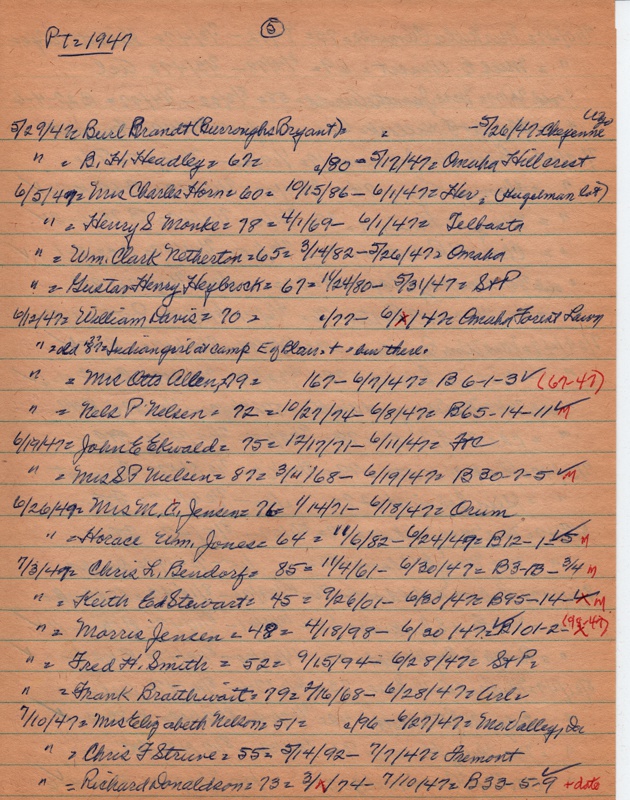 5
Pt = 1947
5/29/47 = Burl Brandt (Burroughs Bryant) = - 5/26/47 = Cheyenne
" = B. H. Headley = 67 = c/80 = 5/17/47 = Omaha Hillcrest
6/5/47 = Mrs Charles Horn = 60 = 10/15/86 - 6/1/47 = Her. (Hugelman lot)
" = Henry S Monke = 78 = 4/1/69 - 6/1/47 = Telbasta
" = Wm. Clark Netherton = 65 = 3/14/82 - 5/26/47 = Omaha
" = Gustav Henry Heybrock = 67 = 11/24/80 - 5/31/47 = St P
6/12/47 = William Davis = 70 = c/77 - 6/x/47 = Omaha Forest Lawn
" = old Indian girl at camp E of Blair + bur there.
" = Mrs Otto Allen, 79 = 167 - 6/7/47 = B 6-1-3 ✓ (67-47)
" = Nels P Nelsen = 72 = 10/27/74 - 6/8/47 = B65-14-11 ✓ M
6/19/47 = John E Ekwald = 75 = 12/17/71 - 6/11/47 =
" = Mrs S F Nielsen = 87 = 3/4/68 - 6/19/47 = B 30-7-5 ✓ M
6/26/47 = Mrs M. A. Jensen = 76 1/14/71 - 6/18/47 = Orum
" = Horace Wm. Jones = 64 = 11/6/82 - 6/24/47 = B12-1-5 M
7/3/47 = Chris L. Bendorf = 85 = 11/4/61 - 6/30/47 = B3-13-3/4 M
" = Keith Ed Stewart = 45 = 9/26/01 - 6/30/47 B95-14-4 M
" = Morris Jensen = 49 = 4/18/98 - 6/30/47 = B101-2- (98-47)
" = Fred H. Smith = 52 = 9/15/94 - 6/28/47 = St P.
" = Frank Braithwait = 79 = 2/16/68 - 6/28/47 = Arl.
7/10/47 = Mrs Elizabeth Nelson = 51 = c/96 - 6/27/47 = Mo. Valley, Ia
" = Chris F Struve = 55 = 5/4/92 - 7/7/47 = Fremont
" = Richard Donaldson = 73 = 3/x/74 - 7/10/47 = B33-5-9 ✓ + date